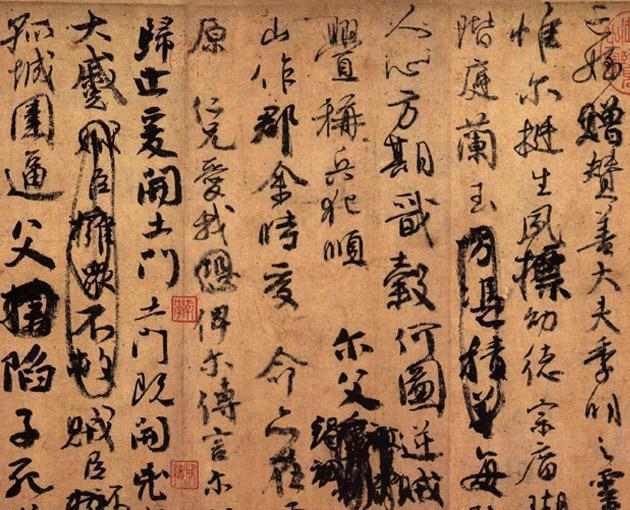 亡姪贈贊善大夫季明之靈
惟爾挺生夙標幼德宗廟瑚
階庭蘭玉方憑積善每
人心方期戩穀何圖逆賊
釁稱兵犯順 爾父
山作郡余時受命亦在平
原仁兄愛我恐俾爾傳言爾
歸止爰開土門土門既開凶
大蹙賊臣擁眾不救賊臣
孤城圍逼父陷子死